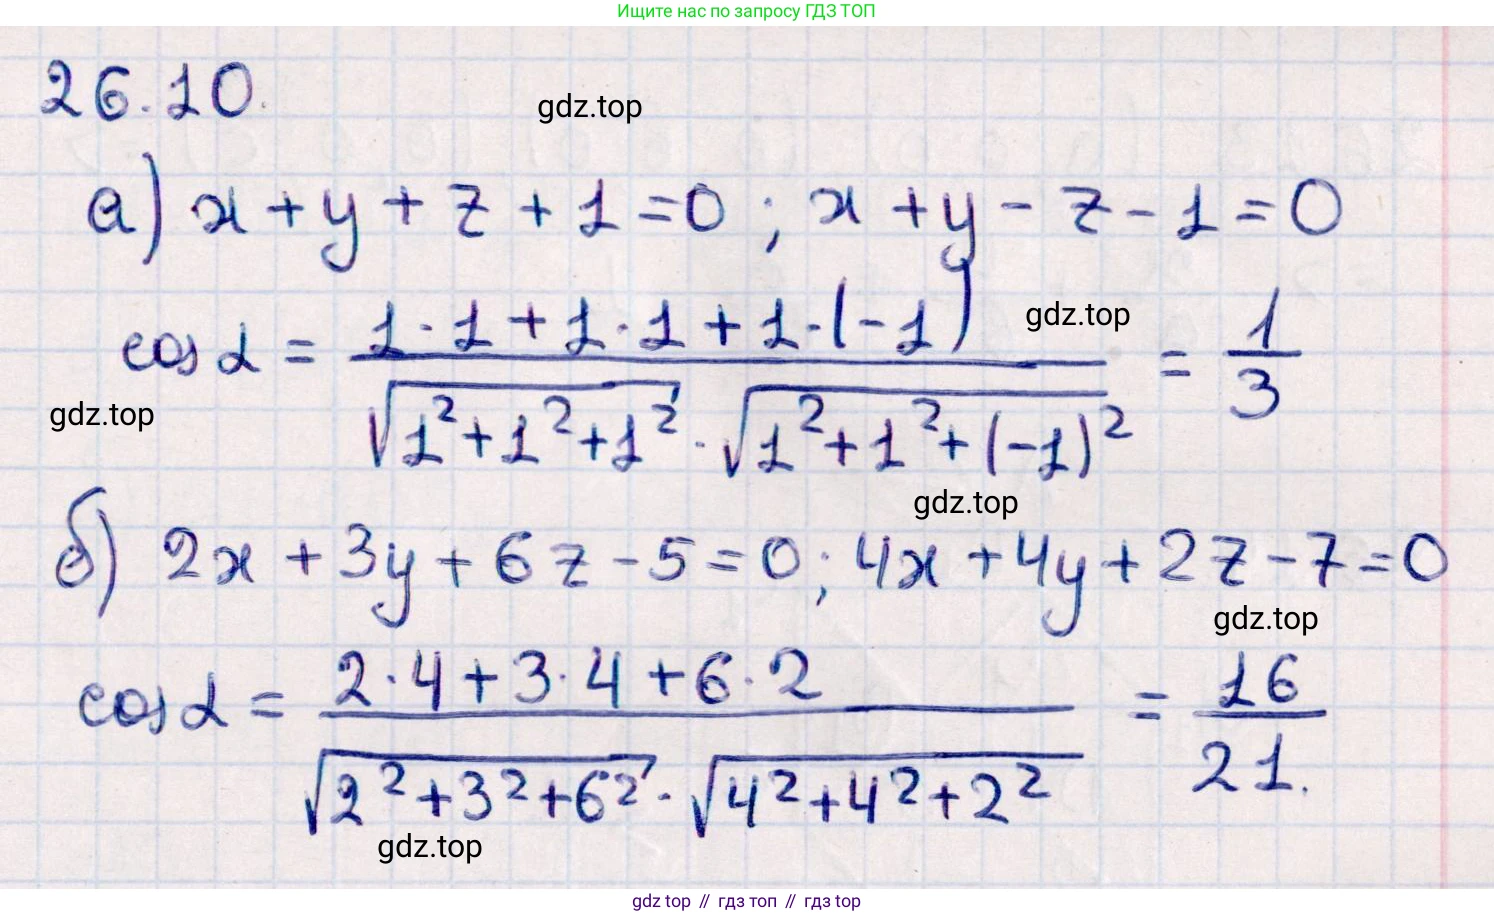 Ищите нас по запросу ГДЗ ТОП
26.10.
gdz.top
а) x + y + z + 1 = 0 ; x + y - z - 1 = 0
cos α = (1·1 + 1·1 + 1·(-1)) / (√(1² + 1² + 1²) · √(1² + 1² + (-1)²)) = 1/3
gdz.top
gdz.top
gdz.top
б) 2x + 3y + 6z - 5 = 0 ; 4x + 4y + 2z - 7 = 0
gdz.top
cos α = (2·4 + 3·4 + 6·2) / (√(2² + 3² + 6²) · √(4² + 4² + 2²)) = 16/21.
gdz.top
gdz top // гдз топ // гдз top